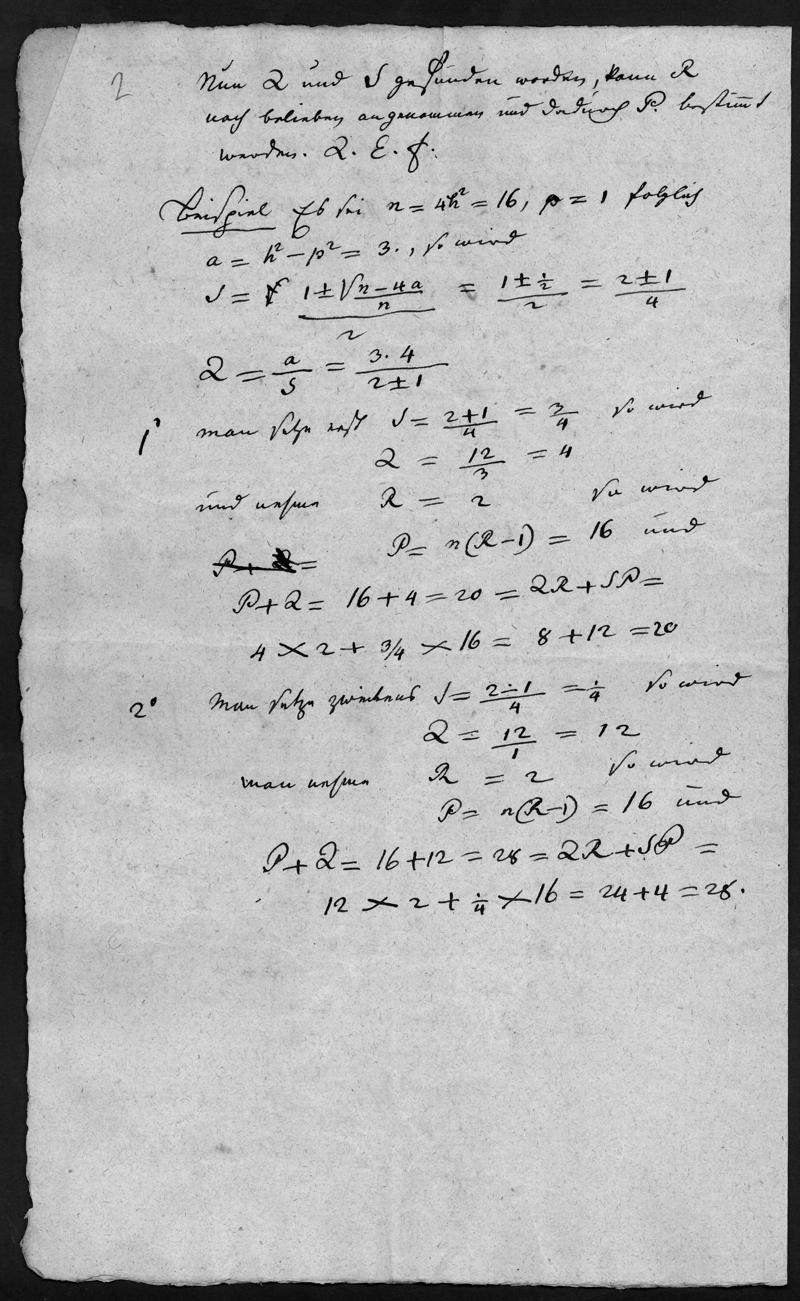 2
Nun Q und S gefunden worden, kann R
nach belieben angenommen und dadurch P. bestimt
werden. Q. E. f:
Beispiel Es sei n = 4h² = 16, p = 1 folglich
a = h² - p² = 3., so wird
S = (1 ± √((n - 4a)/n))/2 = (1 ± ½)/2 = (2 ± 1)/4
Q = a/S = (3. 4)/(2 ± 1)
1° man setze erst S = (2+1)/4 = 3/4 so wird
Q = 12/3 = 4
und nehme R = 2 so wird
P = n(R-1) = 16 und
P + Q = 16 + 4 = 20 = QR + SP =
4 × 2 + 3/4 × 16 = 8 + 12 = 20
2° Man setze zweitens S = (2-1)/4 = ¼ so wird
Q = 12/1 = 12
man nehme R = 2 so wird
P = n(R-1) = 16 und
P + Q = 16 + 12 = 28 = QR + SP =
12 × 2 + ¼ × 16 = 24 + 4 = 28.